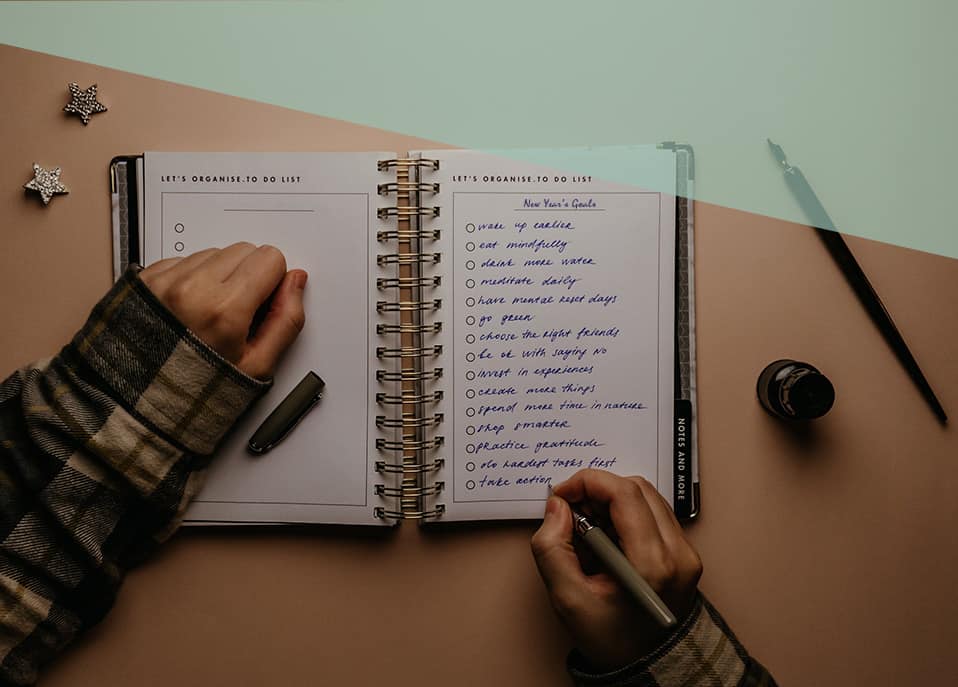 LET'S ORGANISE.TO DO LIST
LET'S ORGANISE.TO DO LIST
New Year's Goals
wake up earlier
eat mindfully
drink more water
meditate daily
have mental reset days
go green
choose the right friends
be ok with saying NO
invest in experiences
create more things
spend more time in nature
shop smarter
practice gratitude
do hardest tasks first
take action
NOTES AND MORE